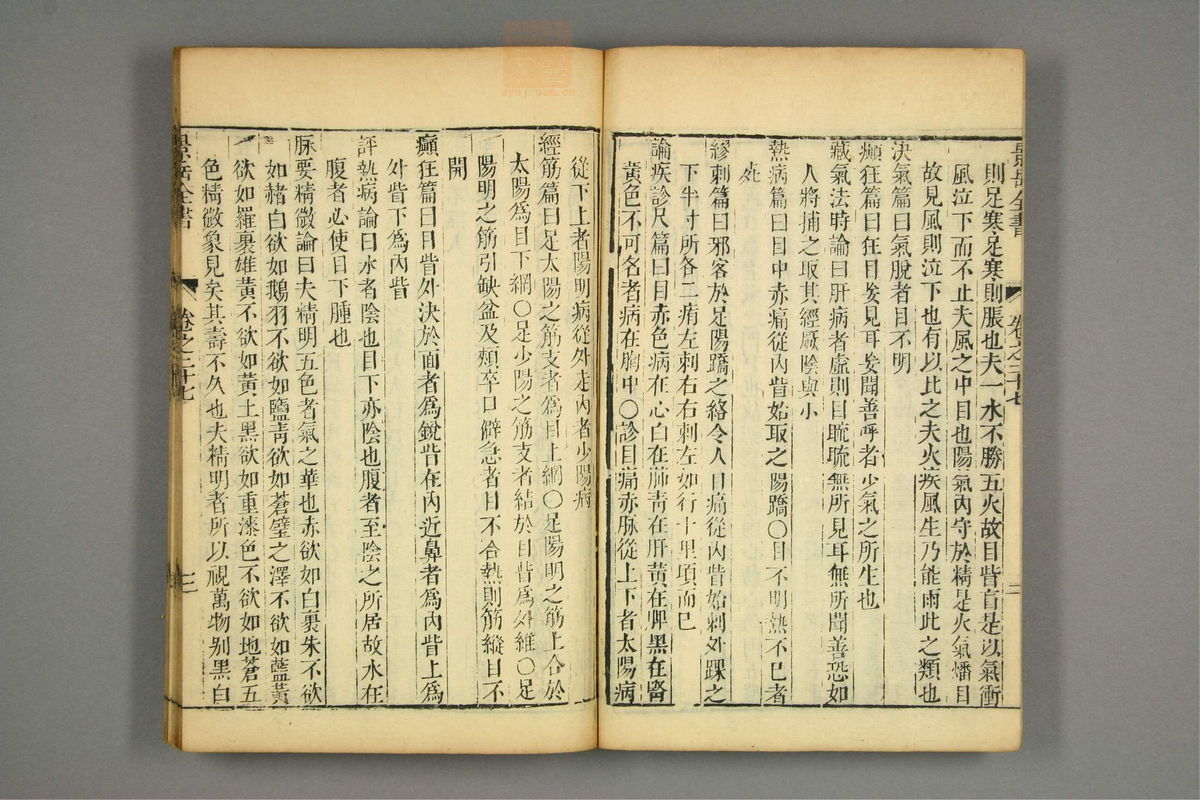 則足寒足寒則脹也夫一水不勝五火故目眥盲是以氣衝
風泣下而不止夫風之中目也陽氣內守於精是火氣燔目
故見風則泣下也有以比之夫火疾風生乃能雨此之類也
決氣篇曰氣脫者目不明
癲狂篇曰狂目妄見耳妄聞善呼者少氣之所生也
藏氣法時論曰肝病者虛則目䀮䀮無所見耳無所聞善恐如
人將捕之取其經厥陰與小
熱病篇曰目中赤痛從內眥始取之陽蹻〇目不明熱不已者
死
繆刺篇曰邪客於足陽蹻之絡令人目痛從內眥始刺外踝之
下半寸所各二痏左刺右右刺左如行十里頃而已
論疾診尺篇曰目赤色病在心白在肺靑在肝黃在脾黑在腎
黃色不可名者病在胸中〇診目痛赤脉從上下者太陽病
從下上者陽明病從外走內者少陽病
經筋篇曰足太陽之筋支者爲目上綱〇足陽明之筋上合於
太陽爲目下綱〇足少陽之筋支者結於目眥爲外維〇足
陽明之筋引缺盆及頰卒口僻急者目不合熱則筋縱目不
開
癲狂篇曰目眥外決於面者爲銳眥在內近鼻者爲內眥上爲
外眥下爲內眥
評熱病論曰水者陰也目下亦陰也腹者至陰之所居故水在
腹者必使目下腫也
脉要精微論曰夫精明五色者氣之華也赤欲如白裹朱不欲
如赭白欲如鵝羽不欲如鹽靑欲如蒼璧之澤不欲如藍黃
欲如羅裹雄黃不欲如黃土黑欲如重漆色不欲如地蒼五
色精微象見矣其壽不久也夫精明者所以視萬物别黑白
景岳全書
卷之二十七
三